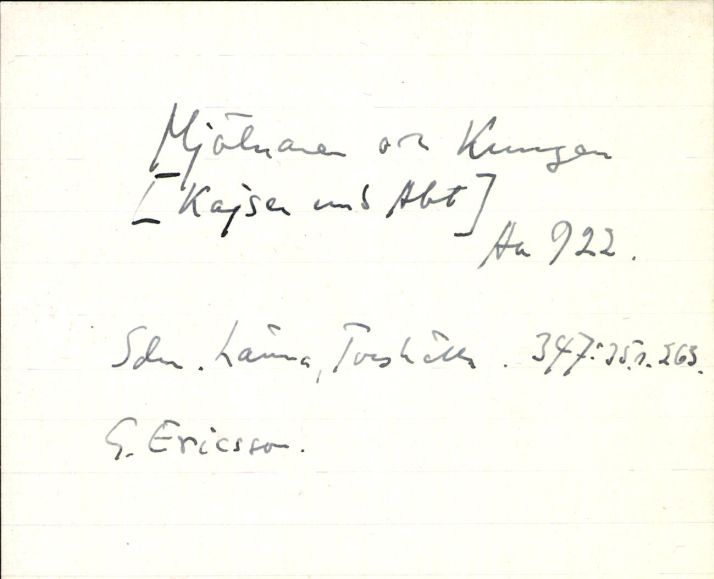 Mjölnaren och Kungen
[Kajser und Abt]
Aa 922.
Sdm. Länna, Torshälla. 347:35 s. 263.
G. Ericsson.